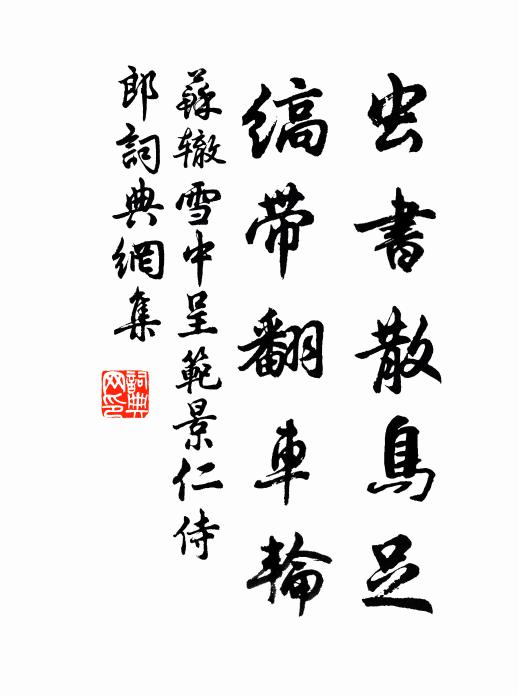 虫書散鳥足
縞帶翻車輪
蘇轍雪中呈範景仁侍
郎詞典網集
詞典
网印